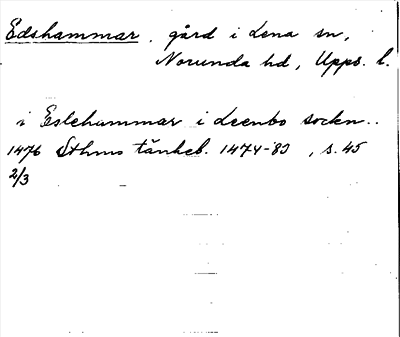 Edshammar. gård i Lena sn,
Norunda hd, Upps. l.
i Eslehammar i Leenbo sockn..
1476 Sthms tänkeb. 1474-83, s. 45
2/3